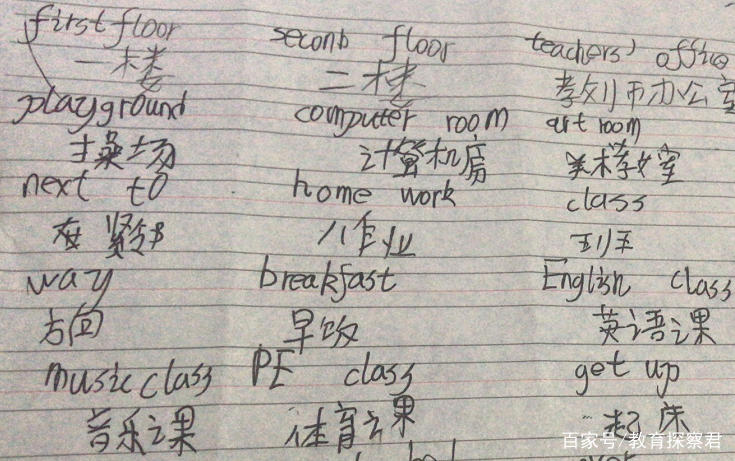 first floor second floor teachers' office
一楼 二楼 教师办公室
playground computer room art room
操场 计算机房 美术教室
next to home work class
在 紧邻 作业 班
way breakfast English class
方向 早饭 英语课
music class PE class get up
音乐课 体育课 起床
百家号/教育探察君